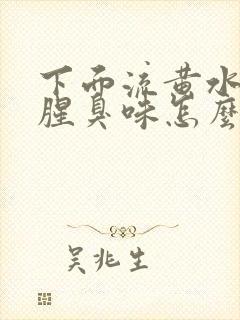 下而流黄水
腥臭味怎麼
吴兆生